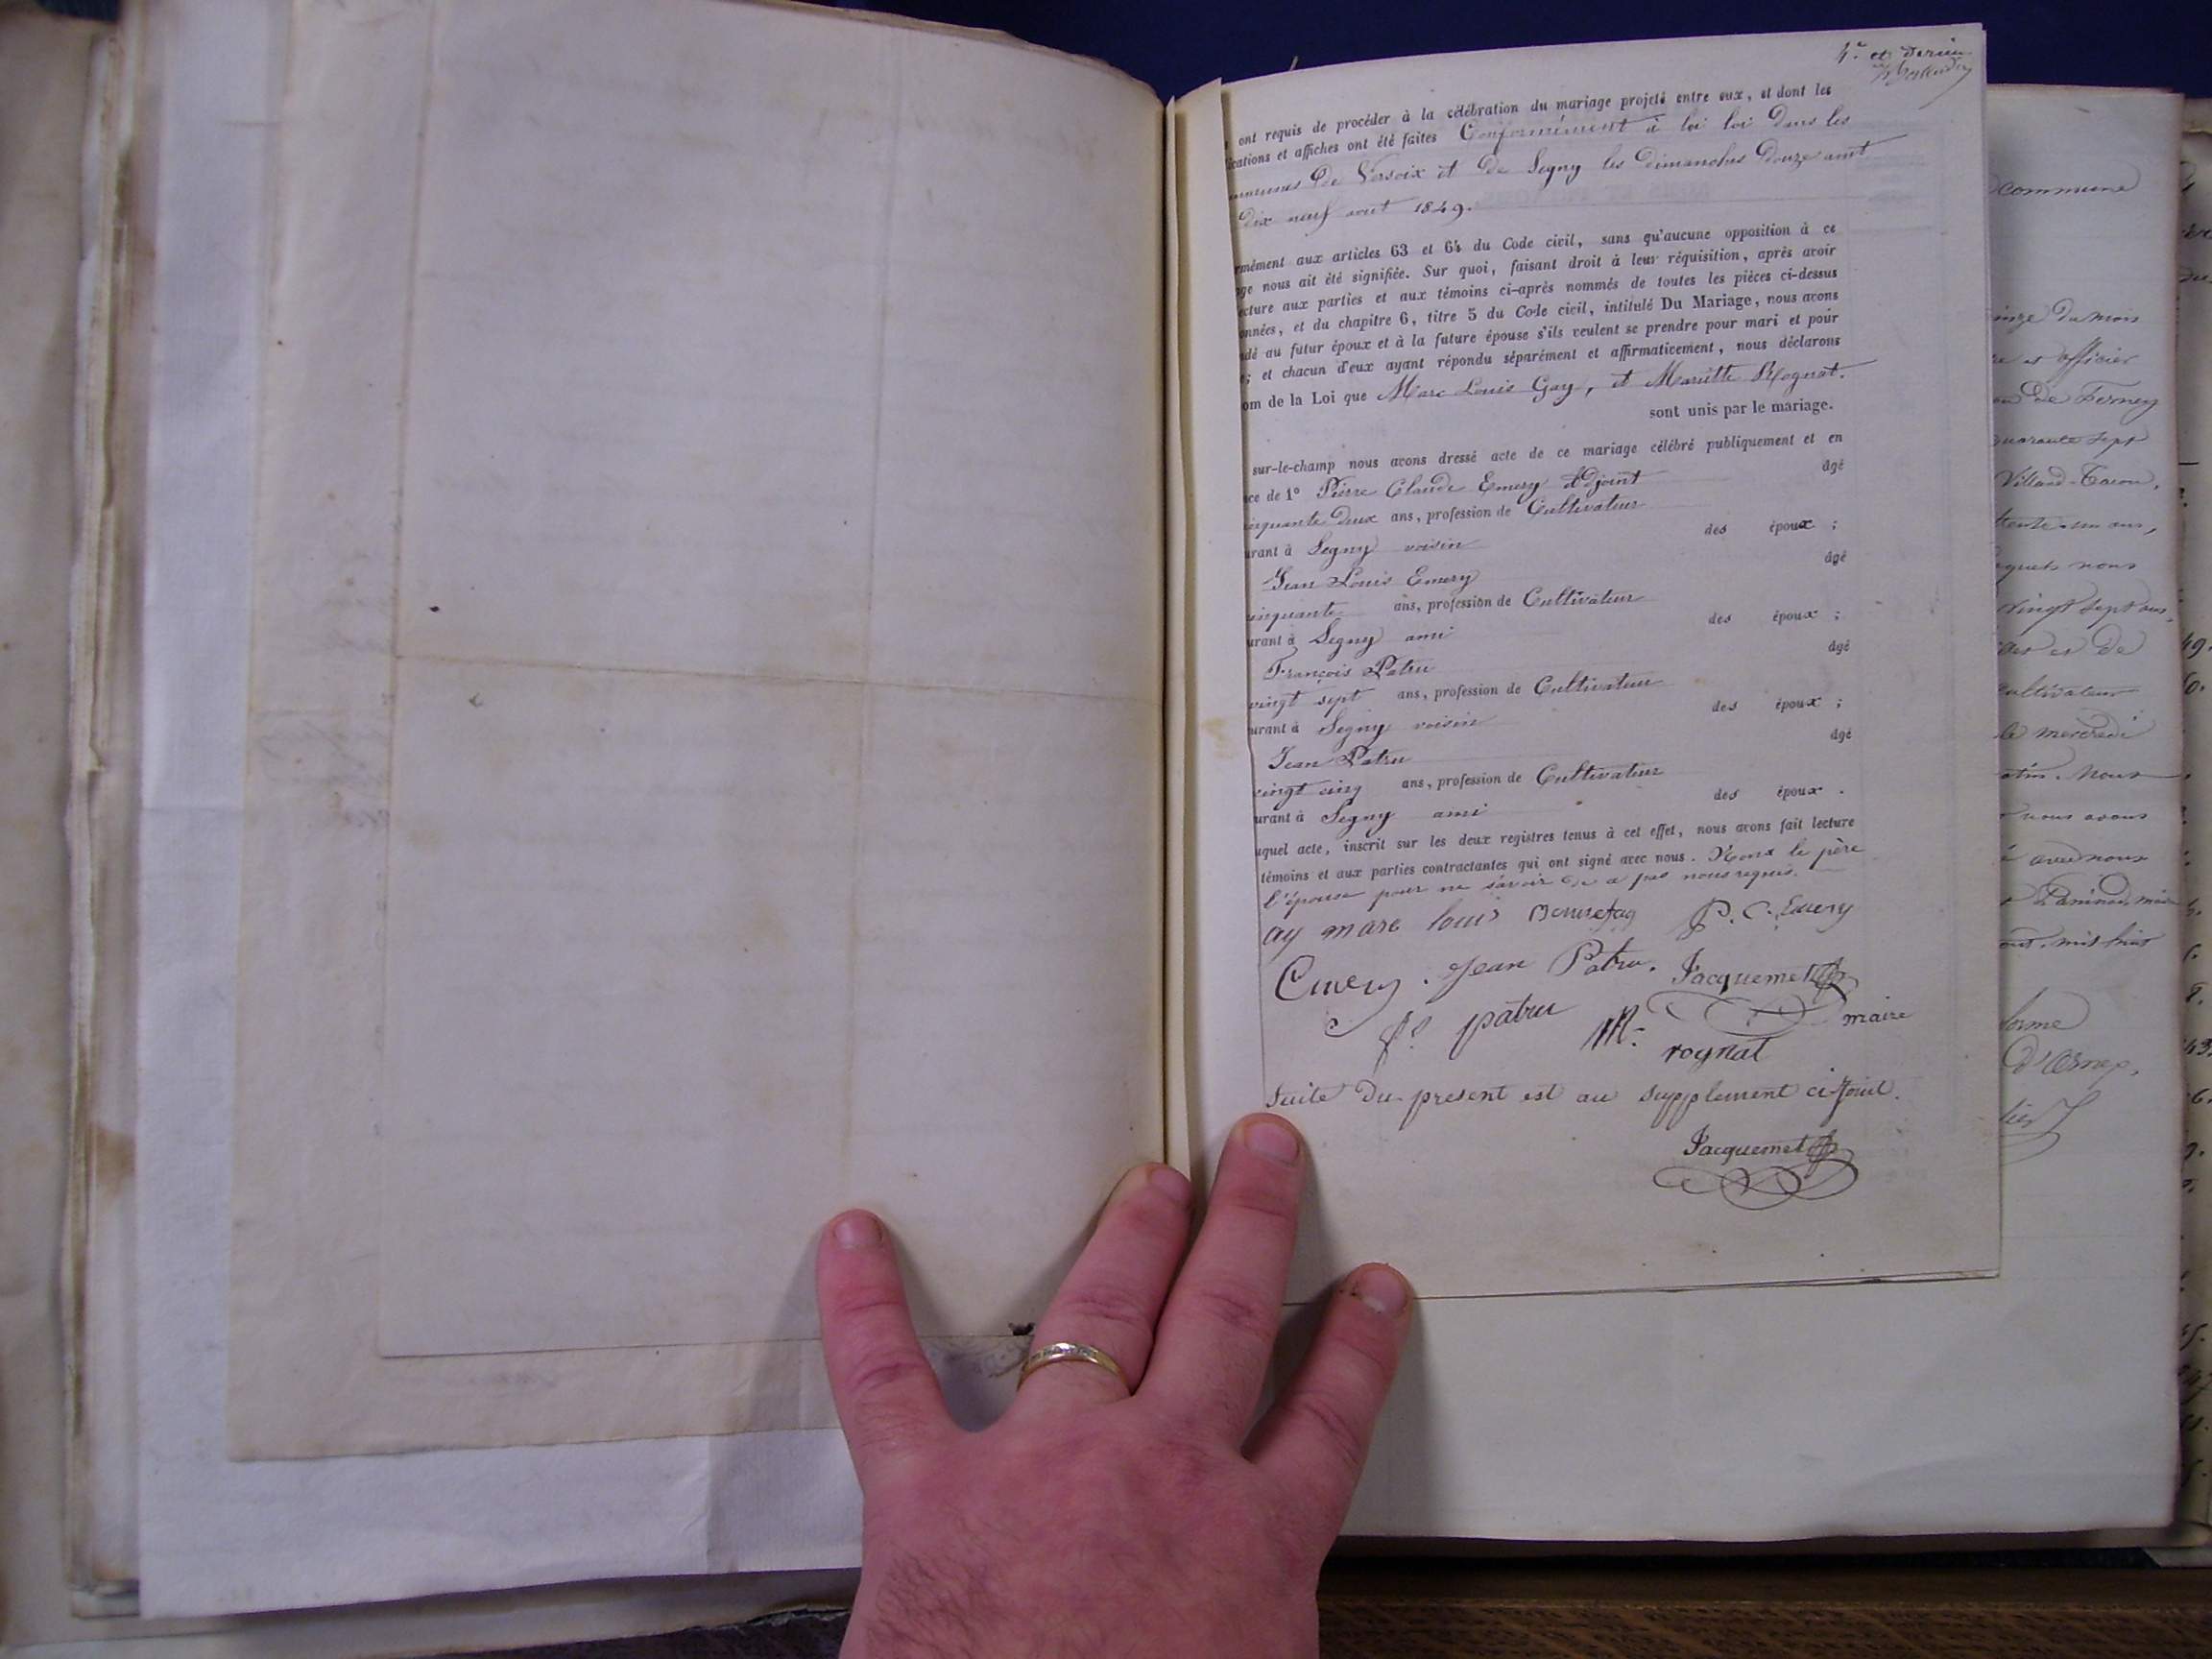 4e et
ont requis de procéder à la célébration du mariage projeté entre eux, et dont les
ications et affiches ont été faites Conformément à loi loi dans les
de Versoix et de Segny les dimanches Douze aout
Dix neuf aout 1849.
rmément aux articles 63 et 64 du Code civil, sans qu'aucune opposition à ce
ge nous ait été signifiée. Sur quoi, faisant droit à leur réquisition, après avoir
ecture aux parties et aux témoins ci-après nommés de toutes les pièces ci-dessus
onnées, et du chapitre 6, titre 5 du Code civil, intitulé Du Mariage, nous avons
ndé au futur époux et à la future épouse s'ils veulent se prendre pour mari et pour
e; et chacun d'eux ayant répondu séparément et affirmativement, nous déclarons
om de la Loi que Marc Louis Gay, et Mariette Rognat.
sont unis par le mariage.
sur-le-champ nous avons dressé acte de ce mariage célébré publiquement et en
ce de 1° Pierre Claude Emery adjoint âgé
inquante deux ans, profession de Cultivateur
urant à Segny voisin des époux ;
Jean Louis Emery âgé
inquante ans, profession de Cultivateur
urant à Segny ami des époux ;
François Patru âgé
vingt sept ans, profession de Cultivateur
urant à Segny voisin des époux ;
Jean Patru âgé
vingt cinq ans, profession de Cultivateur
urant à Segny ami des époux .
uquel acte, inscrit sur les deux registres tenus à cet effet, nous avons fait lecture
témoins et aux parties contractantes qui ont signé avec nous. le père
l'épouse pour ne savoir de a pas nous requis.
ay marc louis P. C. Emery
Emery . Jean Patru. Jacquemet
fs patru M. maire
rognat
Suite du présent est au supplement ci-joint.
Jacquemet
commune
inze du mois
re et officier
de Ferney
quarante sept
Villard-Tacon,
trente-un ans,
nous
vingt sept ans,
et de
cultivateur
le mercredi
Nous
nous avons
avec nous